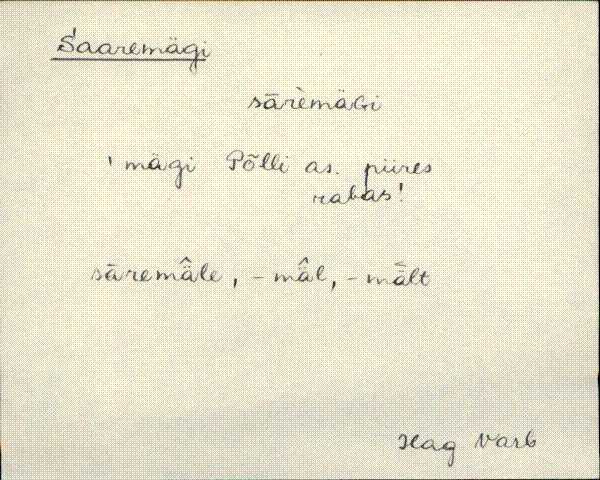 Saaremägi
sārèmäGi
' mägi Põlli as. piires
rabas!
sāremä̂le, – mä̂l, – mä̀lt
Hag Varb